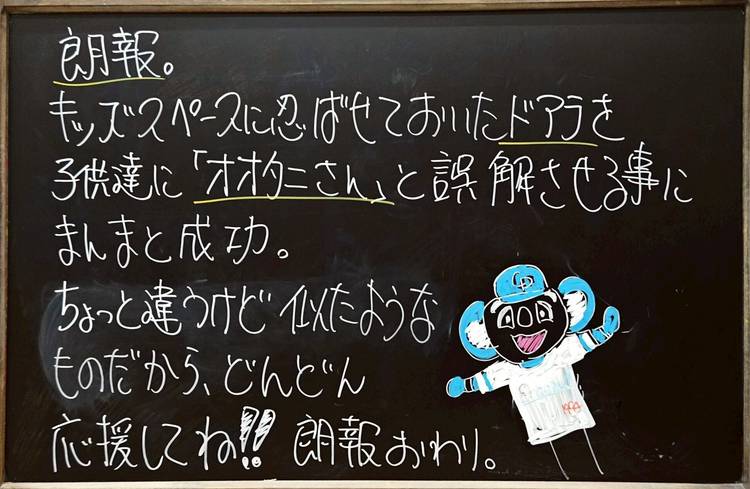 朗報。
キッズスペースに忍ばせておいたドアラを
子供達に「オオタニさん」と誤解させる事に
まんまと成功。
ちょっと違うけど似たような
ものだから、どんどん
応援してね!! 朗報おわり。
CD
1994